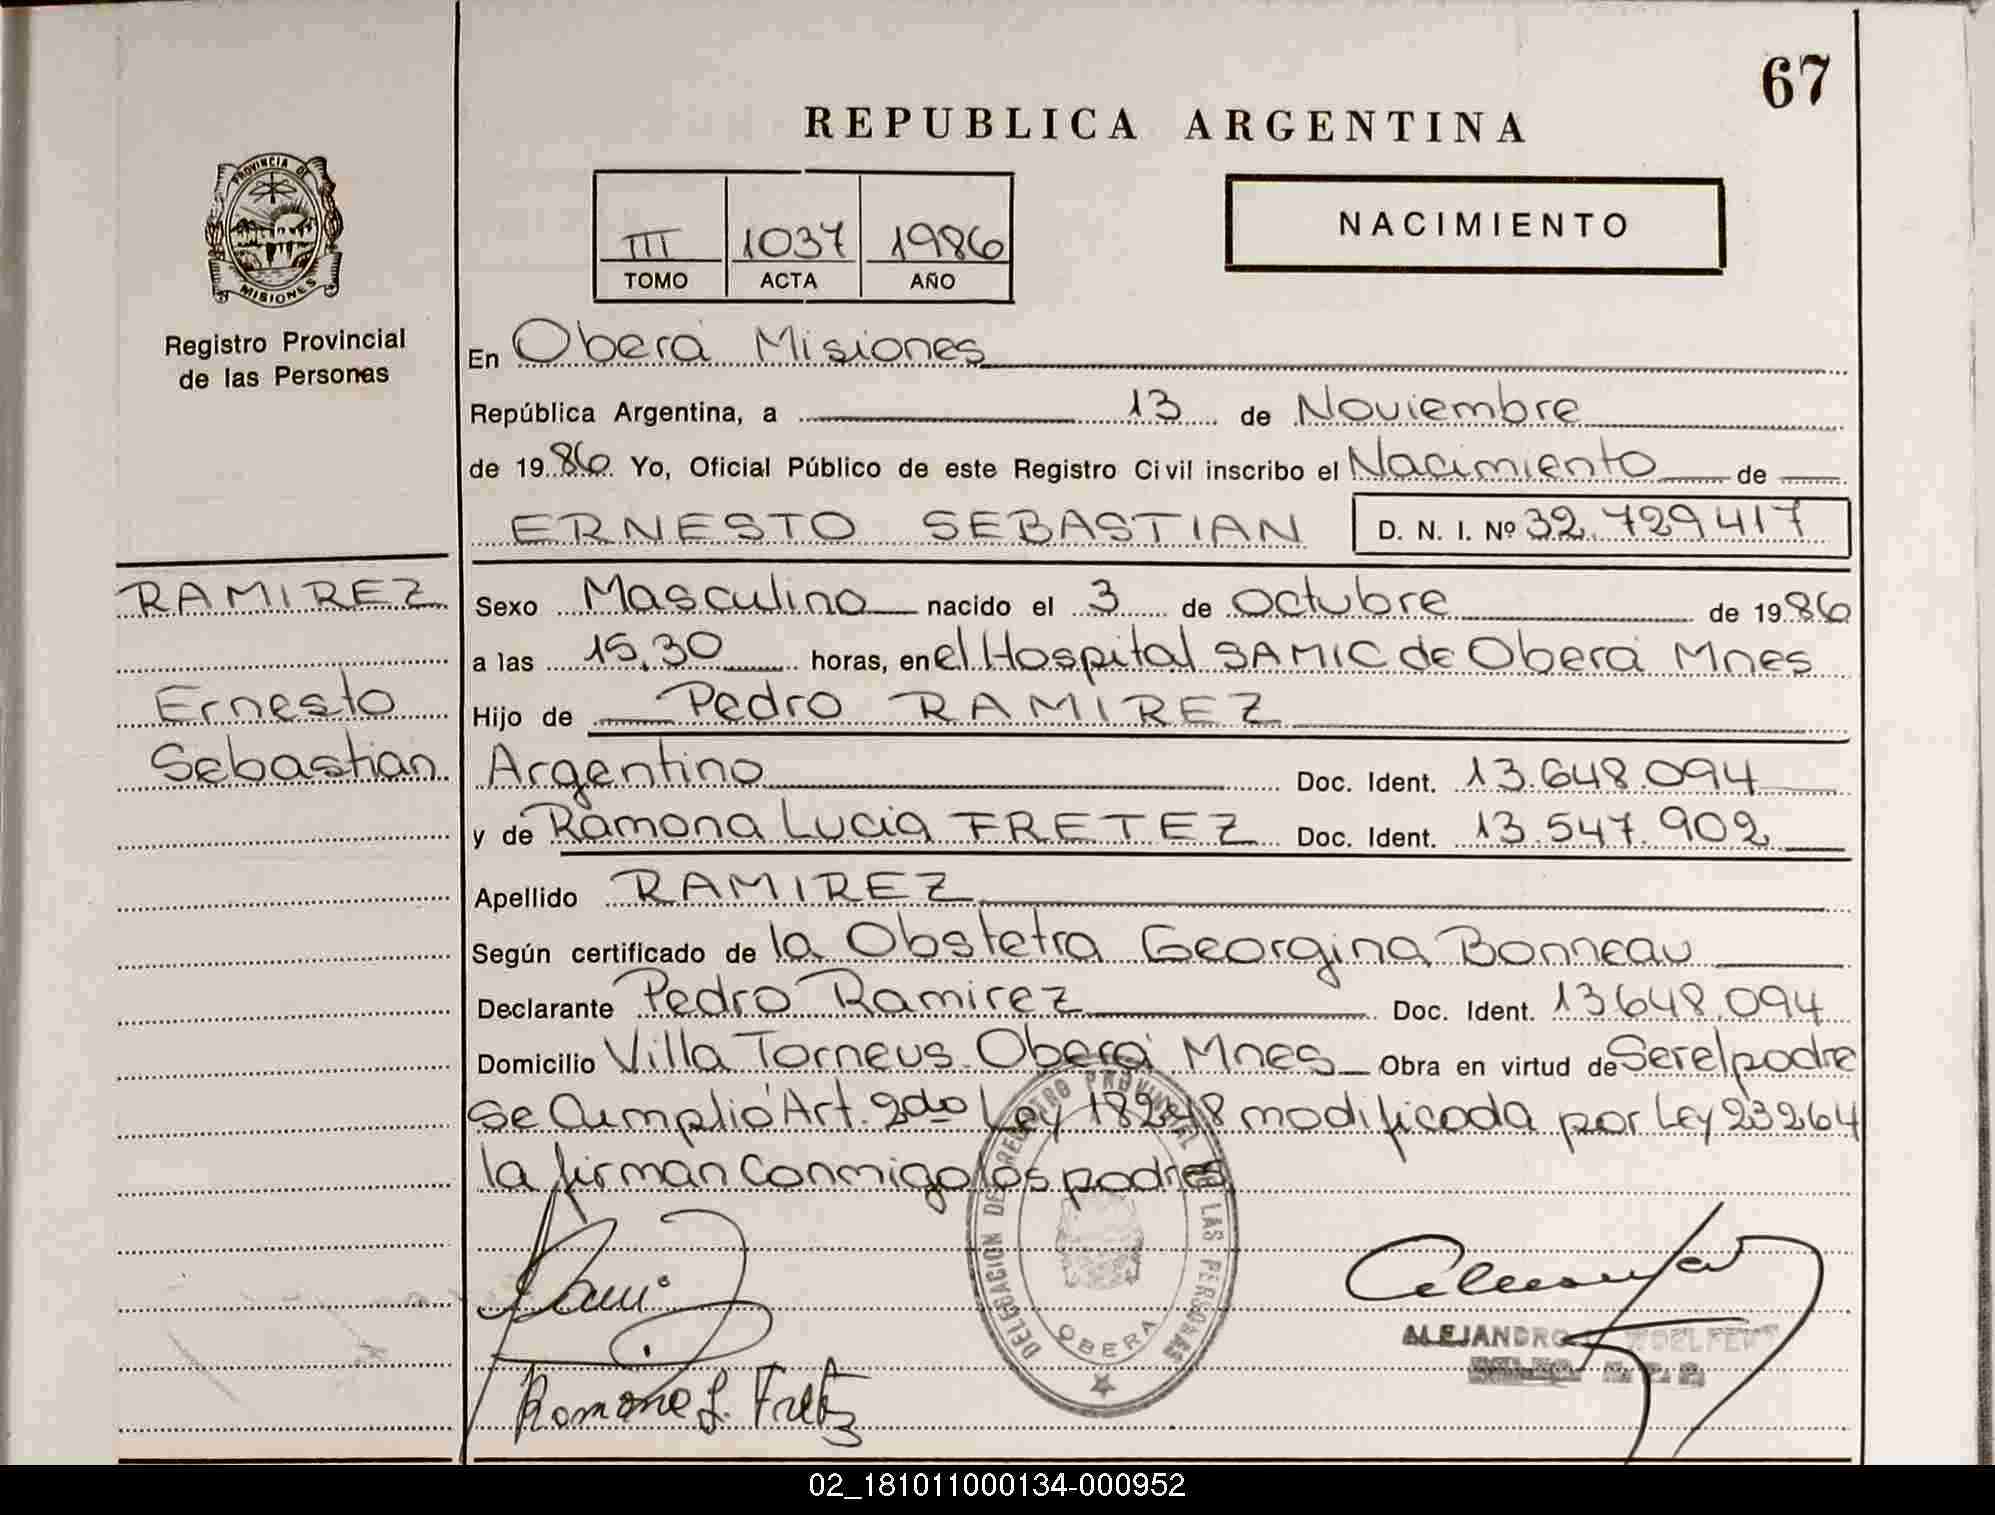 67
REPUBLICA ARGENTINA
PROVINCIA DE
MISIONES
Registro Provincial
de las Personas
III 1037 1986
TOMO ACTA AÑO
NACIMIENTO
En Oberá Misiones
República Argentina, a 13 de Noviembre
de 1986 Yo, Oficial Público de este Registro Civil inscribo el Nacimiento de
ERNESTO SEBASTIAN D. N. I. Nº 32.729417
RAMIREZ
Ernesto
Sebastian
Sexo Masculino nacido el 3 de Octubre de 1986
a las 15,30 horas, en el Hospital SAMIC de Oberá Mnes
Hijo de Pedro RAMIREZ
Argentino Doc. Ident. 13.648.094
y de Ramona Lucia FRETEZ Doc. Ident. 13.547.902
Apellido RAMIREZ
Según certificado de la Obstetra Georgina Bonneau
Declarante Pedro Ramirez Doc. Ident. 13648.094
Domicilio Villa Torneus Oberá Mnes Obra en virtud de Ser el padre
Se Cumplió Art. 2do Ley 18248 modificada por Ley 23264
la firman Conmigo los padres
DELEGACION DEL REGISTRO PROVINCIAL DE LAS PERSONAS
OBERA
Ramona L. Fretez
ALEJANDRO
02_181011000134-000952